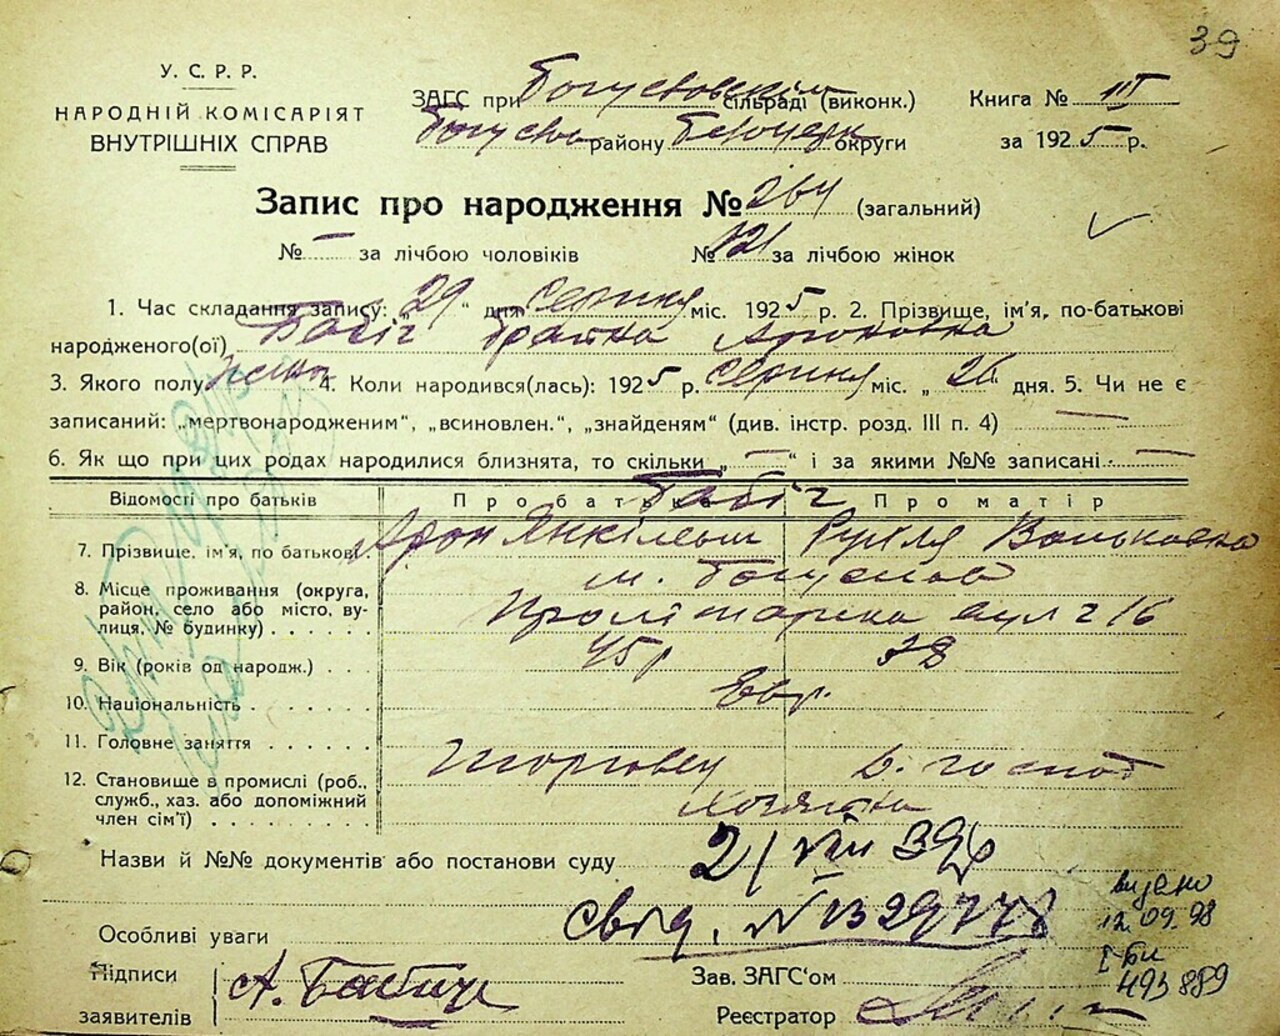 39
У. С. Р. Р.
НАРОДНІЙ КОМІСАРІЯТ
ВНУТРІШНІХ СПРАВ
ЗАГС при Богуславскім сільраді (виконк.)
Книга № III
району Білоцерк округи
за 1925 р.
Запис про народження № 264 (загальний)
№ – за лічбою чоловіків № 121 за лічбою жінок
1. Час складання запису: „29“ дня серпня міс. 1925 р. 2. Прізвище, ім'я, по-батькові
народженого(ої) Бабіч Ароновна
3. Якого полу жіноч 4. Коли народився(лась): 1925 р. серпня міс. „26“ дня. 5. Чи не є
записаний: „мертвонародженим“, „всиновлен.“, „знайденям“ (див. інстр. розд. III п. 4) —
6. Як що при цих родах народилися близнята, то скільки „—“ і за якими №№ записані —
Відомості про батьків Про батька Про матір
Бабіч
7. Прізвище, ім'я, по батькові Арон Янкілевич Рухля Вольковна
8. Місце проживання (округа, район, село або місто, вулиця, № будинку) м. Богуслав
Пролітарска вул 216
9. Вік (років од народж.) 45 р 38
10. Національність Евр.
11. Головне заняття Торговец д. господ
12. Становище в промислі (роб., служб., хаз. або допоміжний член сім'ї) хозяйка
Назви й №№ документів або постанови суду 21 VIII 39 р
свід. № 1329778
видано
12.09.98
I-БК
493889
Особливі уваги
Підписи заявителів А. Бабич
Зав. ЗАГС'ом
Реєстратор